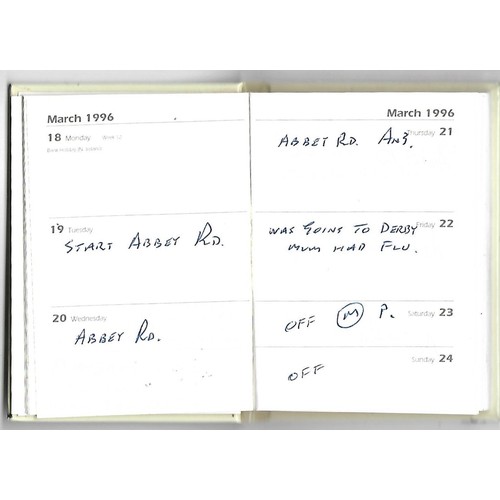 March 1996
18 Monday
19 Tuesday
START ABBEY RD.
20 Wednesday
ABBEY RD.
March 1996
Thursday 21
ABBEY RD.
Friday 22
WAS GOING TO DERBY
MUM HAD FLU.
Saturday 23
OFF M P.
Sunday 24
OFF